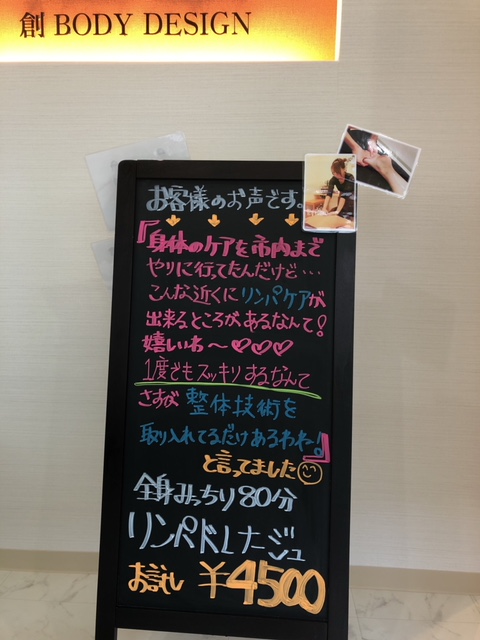 創 BODY DESIGN
お客様のお声です。
『身体のケアを市内まで
やりに行ってたんだけど…
こんな近くにリンパケアが
出来るところがあるなんて!
嬉しいわ〜♡♡♡
1度でもスッキリするなんて
さすが 整体技術を
取り入れてるだけあるわね!』
と言ってました
全身みっちり80分
リンパドレナージュ
お試し ¥4500